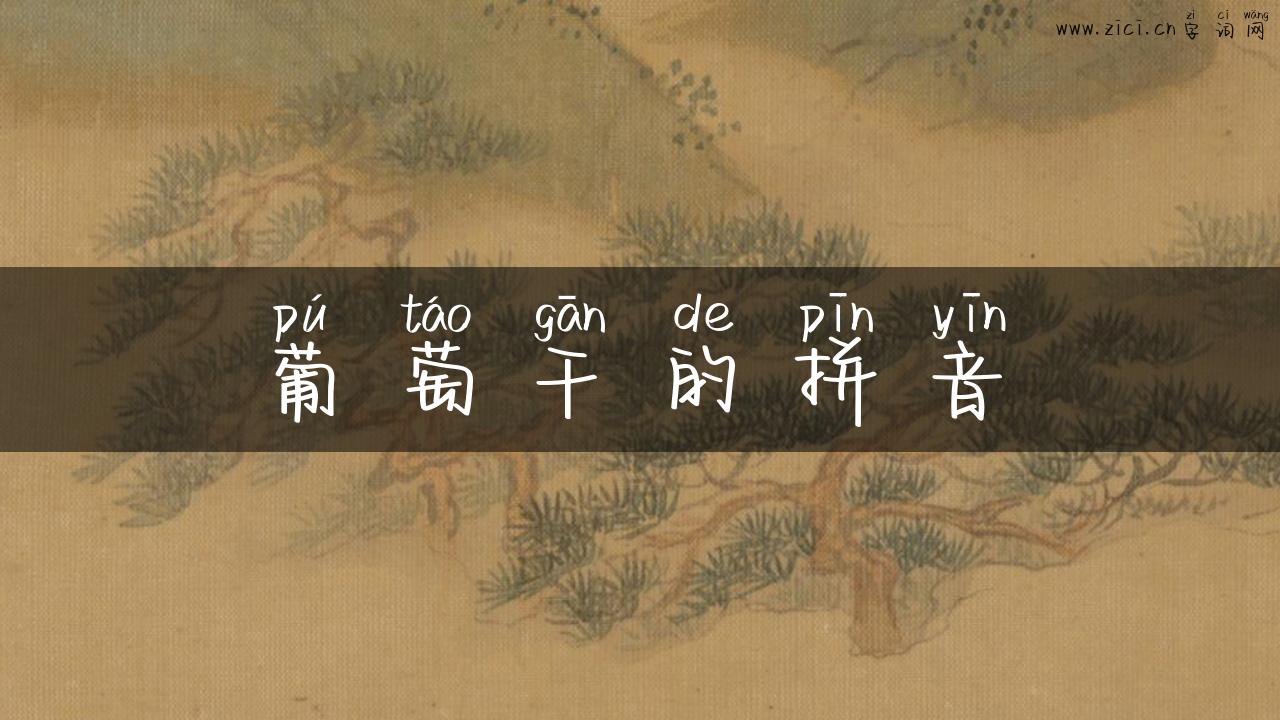 zì cí wǎng
www.zìcí.cn 字 词 网
pú táo gān de pīn yīn
葡 萄 干 的 拼 音